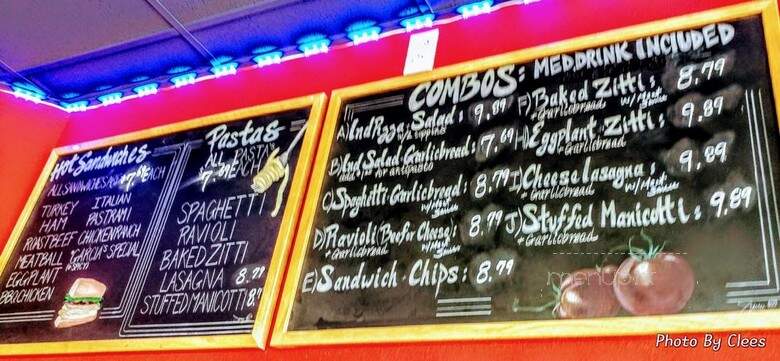 Hot Sandwiches
ALL SANDWICHES
EACH
TURKEY ITALIAN
HAM PASTRAMI
ROASTBEEF CHICKEN RANCH
MEATBALL "GARCIA" SPECIAL
EGGPLANT
BBQ CHICKEN
Pastas
ALL PASTA
EACH
SPAGHETTI
RAVIOLI
BAKED ZITTI
LASAGNA
STUFFED MANICOTTI
COMBOS: MED DRINK INCLUDED
A) Salad: 9,89
B) Salad Garlicbread: 7.69
C) Spaghetti Garlicbread: 8.79
D) Ravioli Beef or Cheese: 8.79
+ Garlicbread
E) Sandwich + Chips: 8.79
F) Baked Zitti: 8.79
+ Garlicbread
H) Eggplant + Zitti: 9.89
+ Garlicbread
I) Cheese lasagna: 9.89
+ Garlicbread
J) Stuffed Manicotti: 9.89
+ Garlicbread
menupix
Photo By Clees